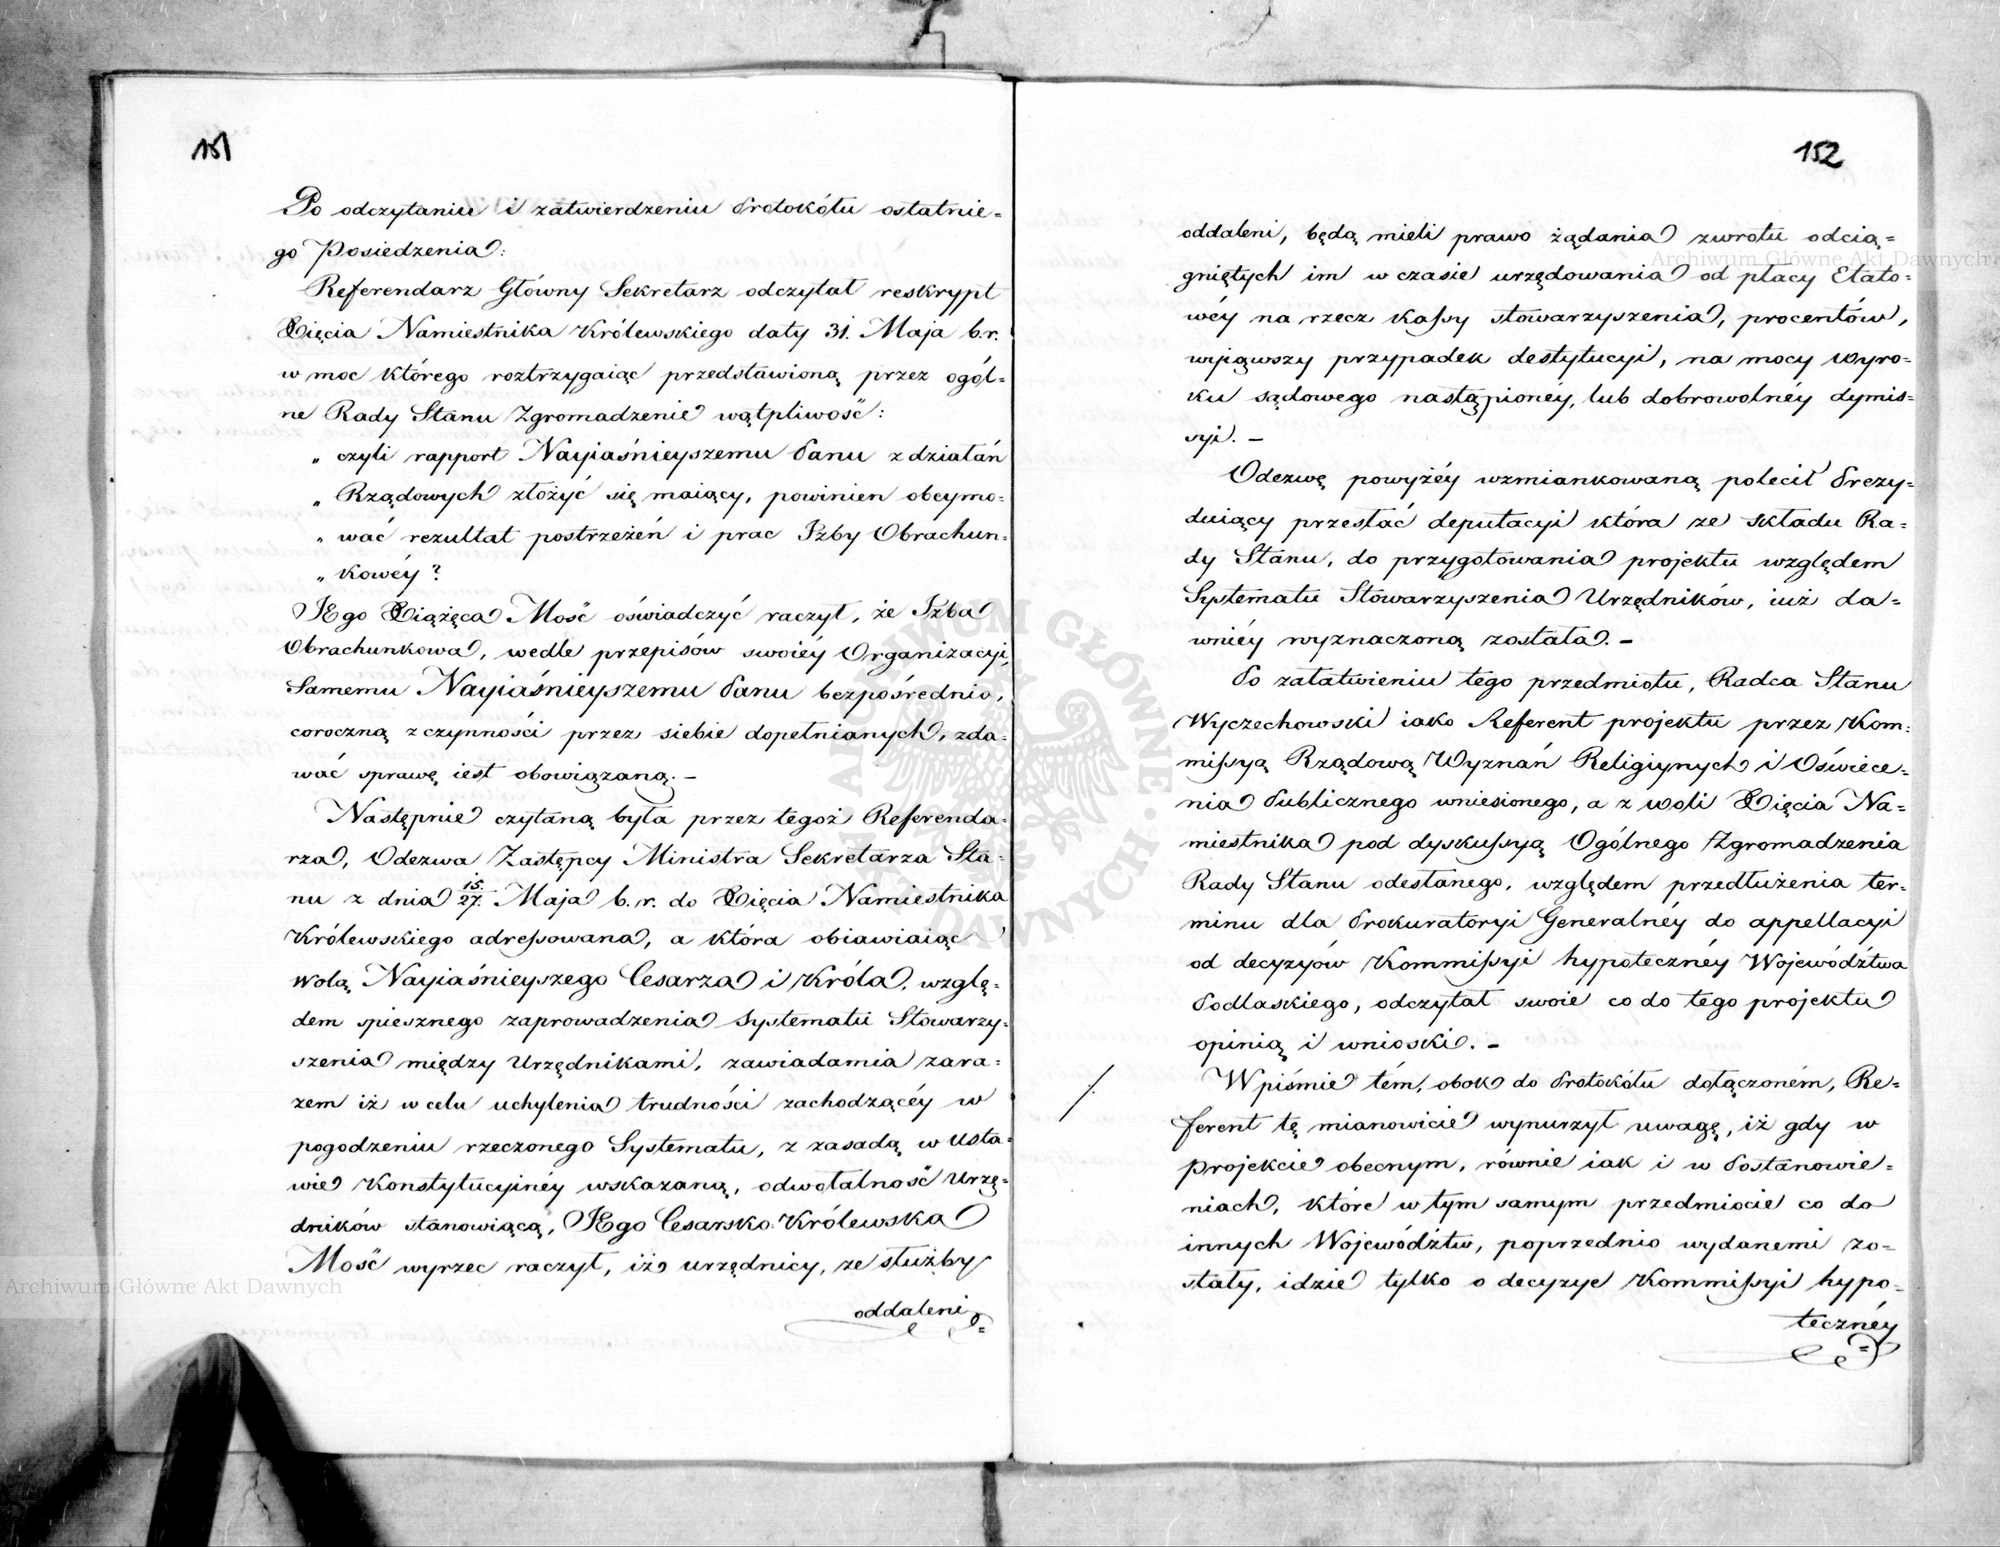 151
Po odczytaniu i zatwierdzeniu Protokółu ostatnie=
go Posiedzenia:
Referendarz Główny Sekretarz odczytał reskrypt
Xięcia Namiestnika Królewskiego daty 31. Maja b.r.
w moc którego roztrzygaiąc przedstawioną przez ogól=
ne Rady Stanu Zgromadzenie wątpliwość:
„ czyli rapport Nayiaśnieyszemu Panu z działań
„ Rządowych złożyć się maiący, powinien obeymo=
„ wać rezultat postrzeżeń i prac Izby Obrachun=
„ kowéy?
JEgo Xiążęca Mość oświadczyć raczył, że Izba
Obrachunkowa, wedle przepisów swoiéy Organizacyi,
Samemu Nayiaśnieyszemu Panu bezpośrednio,
coroczną z czynności przez siebie dopełnianych, zda=
wać sprawę iest obowiązaną. –
Następnie czytaną była przez tegoż Referenda=
rza, Odezwa Zastępcy Ministra Sekretarza Sta=
nu z dnia 15/27. Maja b. r. do Xięcia Namiestnika
Królewskiego adressowana, a która obiawiaiąc
Wolą Nayiaśnieyszego Cesarza i Króla, wzglę=
dem spiesznego zaprowadzenia Systematu Stowarzy=
szenia między Urzędnikami, zawiadamia zara=
zem iż w celu uchylenia trudności zachodzącéy w
pogodzeniu rzeczonego Systematu, z zasadą w Usta=
wie Konstytucyiney wskazaną, odwołalność Urzę=
dników stanowiącą, JEgo Cesarsko=Królewska
Mość wyrzec raczył, iż urzędnicy, ze służby
oddaleni=
152
oddaleni, będą mieli prawo żądania zwrotu odcią=
gniętych im w czasie urzędowania od płacy Etato=
wéy na rzecz kassy stowarzyszenia, procentów,
wyiąwszy przypadek destytucyi, na mocy wyro=
ku sądowego nastąpionéy, lub dobrowolnéy dymis=
syi. –
Odezwę powyżéy wzmiankowaną polecił Prezy=
duiący przesłać deputacyi która ze składu Ra=
dy Stanu, do przygotowania projektu względem
Systematu Stowarzyszenia Urzędników, iuż da=
wniéy wyznaczoną została. –
Po załatwieniu tego przedmiotu, Radca Stanu
Wyczechowski iako Referent projektu przez Kom=
missyą Rządową Wyznań Religiynych i Oświece=
nia Publicznego wniesionego, a z woli Xięcia Na=
miestnika pod dyskussyą Ogólnego Zgromadzenia
Rady Stanu odesłanego, względem przedłużenia ter=
minu dla Prokuratoryi Generalnéy do appellacyi
od decyzyów Kommissyi hypotecznéy Województwa
Podlaskiego, odczytał swoie co do tego projektu
opinią i wnioski. –
W piśmie tém, obok do Protokółu dołączoném, Re=
ferent tę mianowicie wynurzył uwagę, iż gdy w
projekcie obecnym, równie iak i w Postanowie=
niach, które w tym samym przedmiocie co do
innych Województw, poprzednio wydanemi zo=
stały, idzie tylko o decyzye Kommissyi hypo=
tecznéy=
Archiwum Główne Akt Dawnych
Archiwum Główne Akt Dawnych
ARCHIWUM GŁÓWNE AKT DAWNYCH